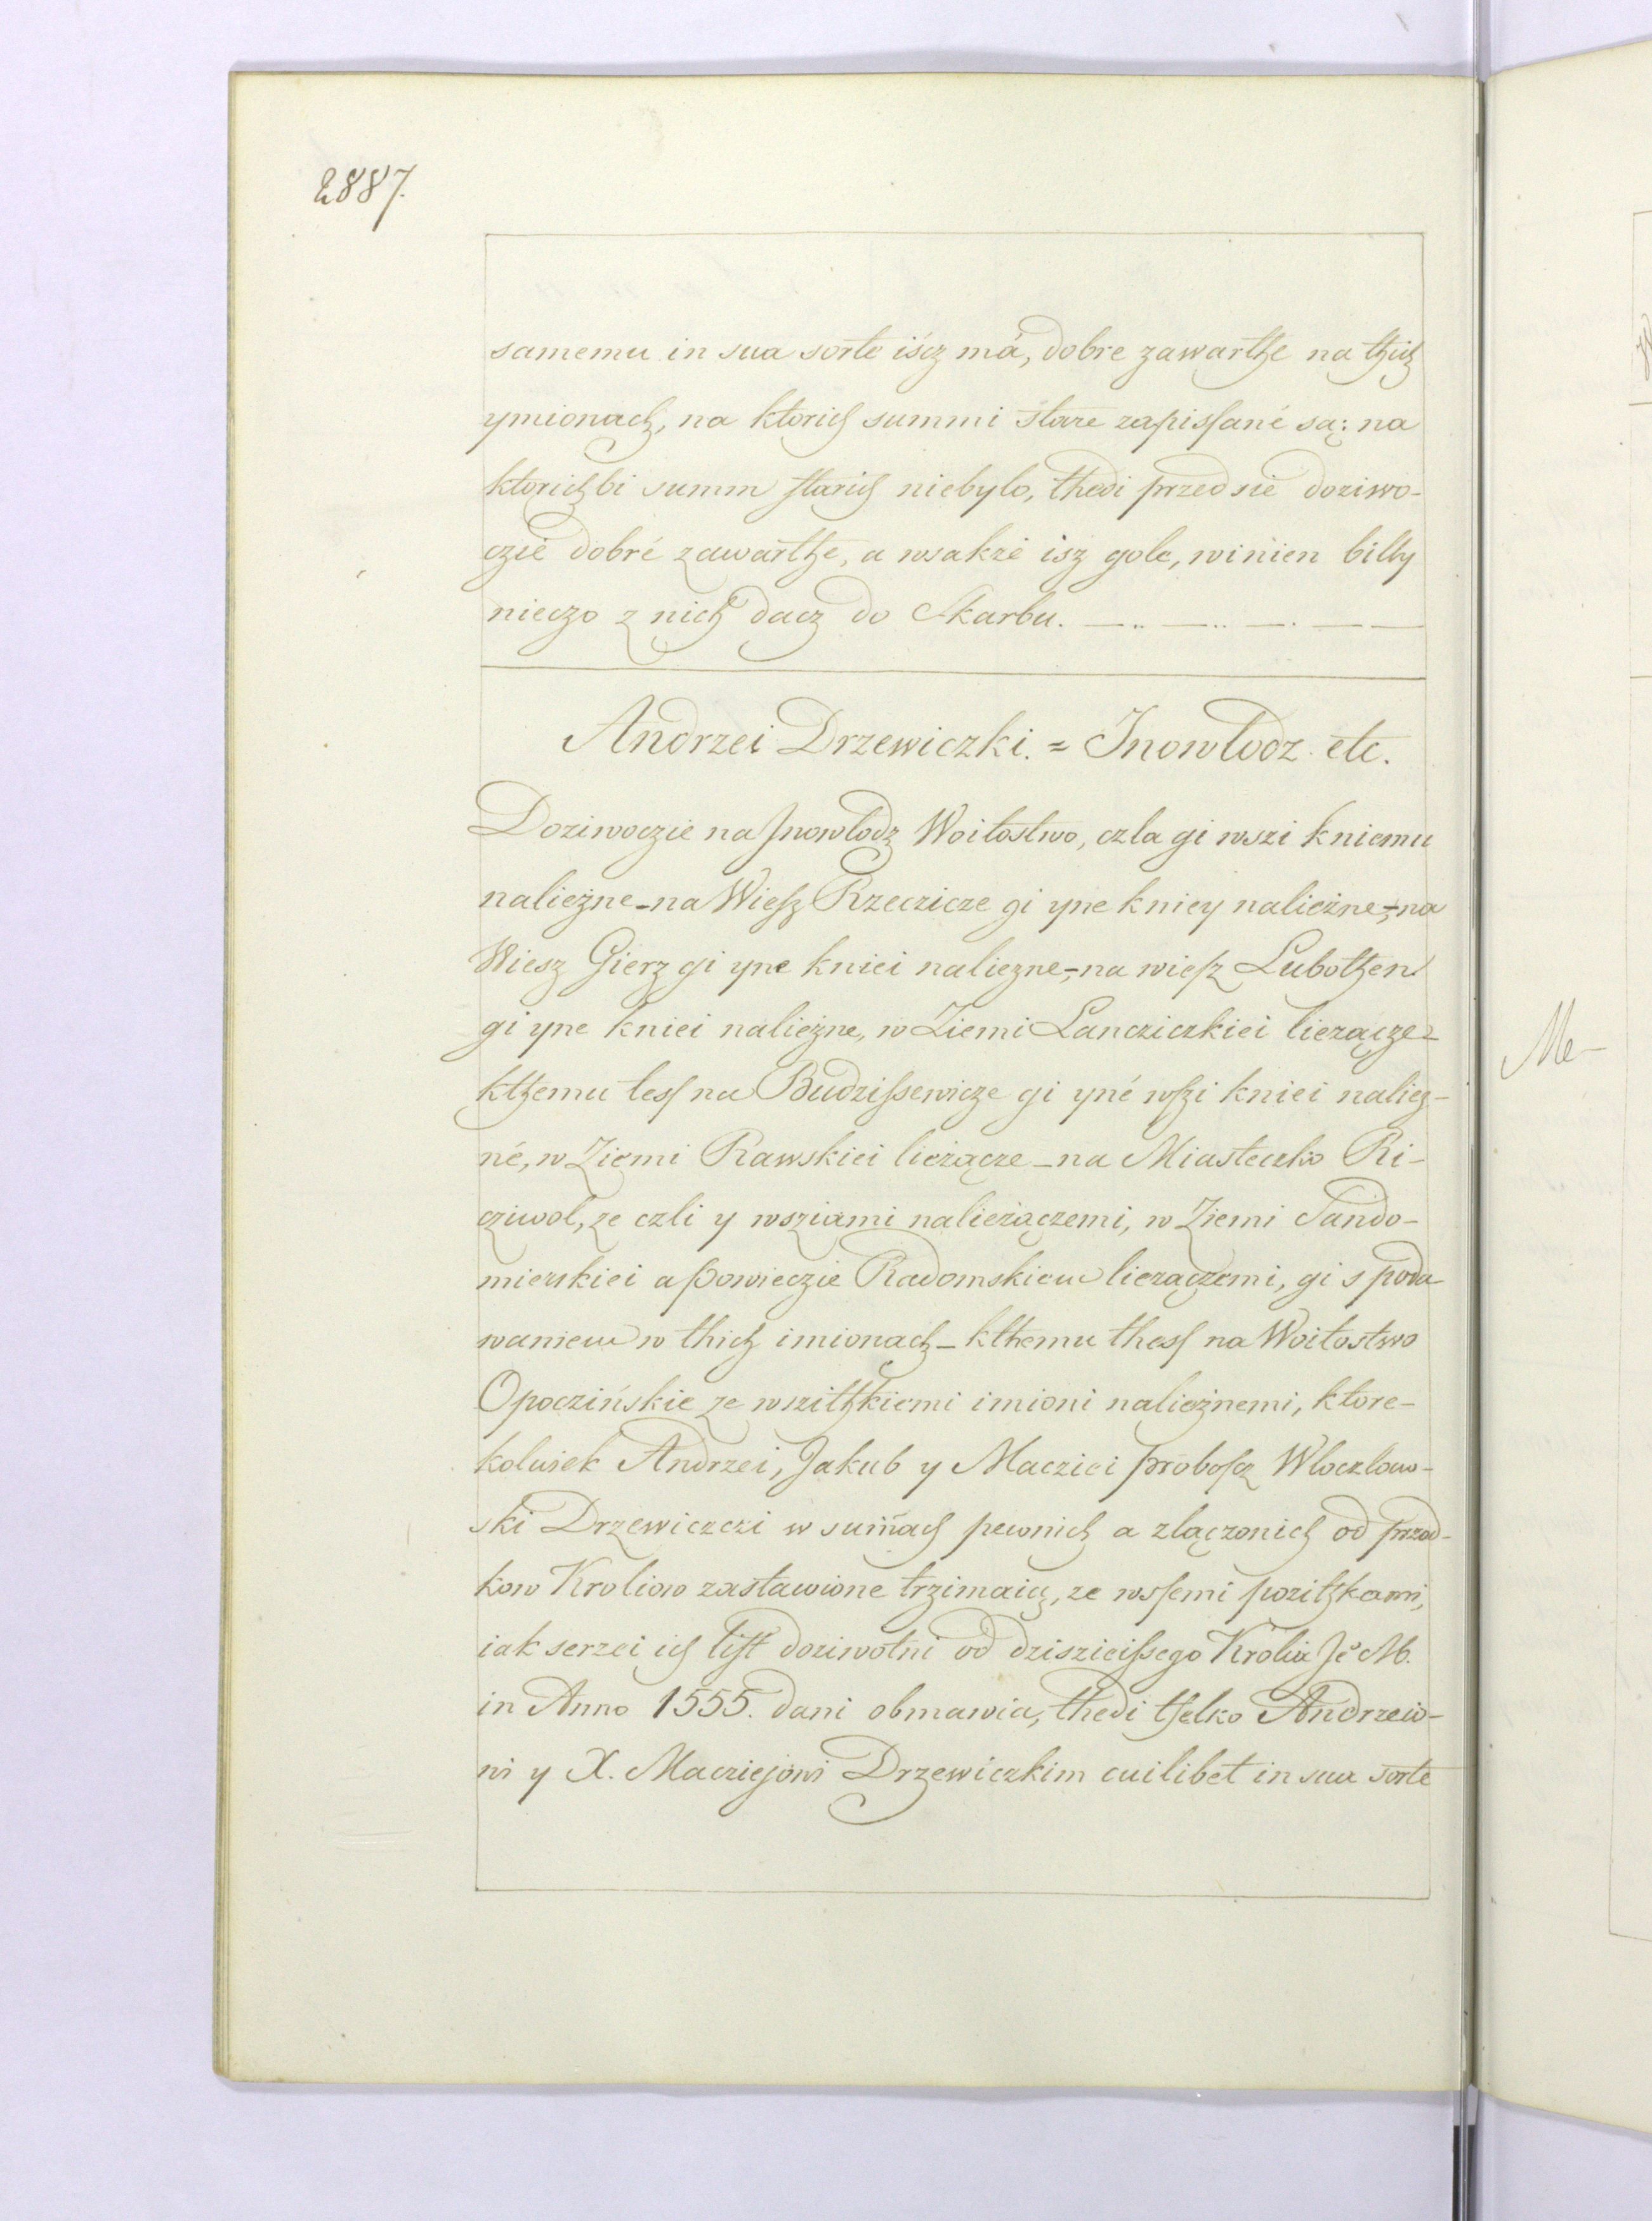 2887.
samemu in sua sorte iścz má, dobre zawarthe na thich
ymionach, na ktorich summi stare zapissané są: na
ktorichbi summ starich niebylo, thedi przedsię doziwo-
czié dobré zawarthe, a wsakże isz gole, winien bilby
nieczo z nich dacz do Skarbu.
Andrzei Drzewiczki. = Jnowlodz etc.
Doziwoczie na Jnowlodz Woitostwo, czla gi wszi kniemu
należne - na Wiesz Rzeczicze gi yne kniey nalieżne, - na
Wiesz Gierz gi yne kniei naliezne, - na wiesz Lubothen
gi yne kniei nalieżne, w Ziemi Lancziczkiei lieżącze -
kthemu tess na Budzissewicze gi yné wszi kniei naliez-
né, w Ziemi Rawskiei lieżącze - na Miasteczko Ri-
cziwol, ze czli y wsziami nalieżączemi, w Ziemi Sando-
mierskiei a powieczie Radomskiem lieżączemi, gi s poda-
waniem w thich imionach - kthemu thess na Woitostwo
Opoczińskie ze wszithkiemi imioni nalieżnemi, ktore-
kolwiek Andrzei, Jakub y Macziei probosz Wloczlow-
ski Drzewiczczi w sum̃ach pewnich a zlączonich od przod-
kow Kroliow zastawione trzimaią, ze wssemi pozithkami,
iak serzei ich list doziwotni od dziszieissego Krolia Je° M.
in Anno 1555. dani obmawia, thedi tselko Andrzeio-
wi y X. Macziejowi Drzewiczkim cuilibet in sua sorte
Me-